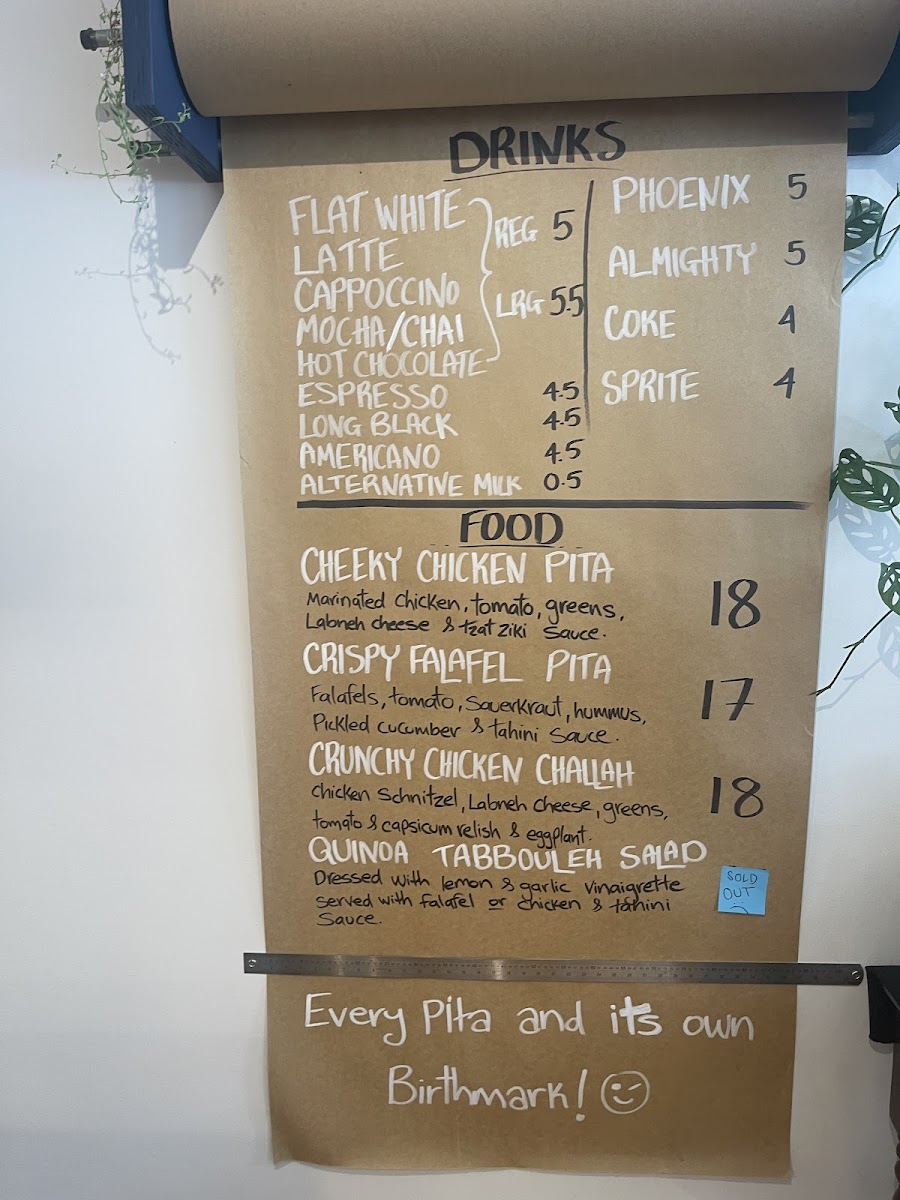 DRINKS
FLAT WHITE
LATTE
CAPPOCCINO
MOCHA/CHAI
HOT CHOCOLATE
REG 5
LRG 5.5
ESPRESSO 4.5
LONG BLACK 4.5
AMERICANO 4.5
ALTERNATIVE MILK 0.5
PHOENIX 5
ALMIGHTY 5
COKE 4
SPRITE 4
FOOD
CHEEKY CHICKEN PITA
Marinated chicken, tomato, greens,
Labneh cheese & tzatziki sauce.
18
CRISPY FALAFEL PITA
Falafels, tomato, Sauerkraut, hummus,
Pickled cucumber & tahini sauce.
17
CRUNCHY CHICKEN CHALLAH
Chicken Schnitzel, Labneh cheese, greens,
tomato & capsicum relish & eggplant.
18
QUINOA TABBOULEH SALAD
Dressed with lemon & garlic vinaigrette
served with falafel or chicken & tahini
Sauce.
SOLD
OUT
Every Pita and it's own
Birthmark!